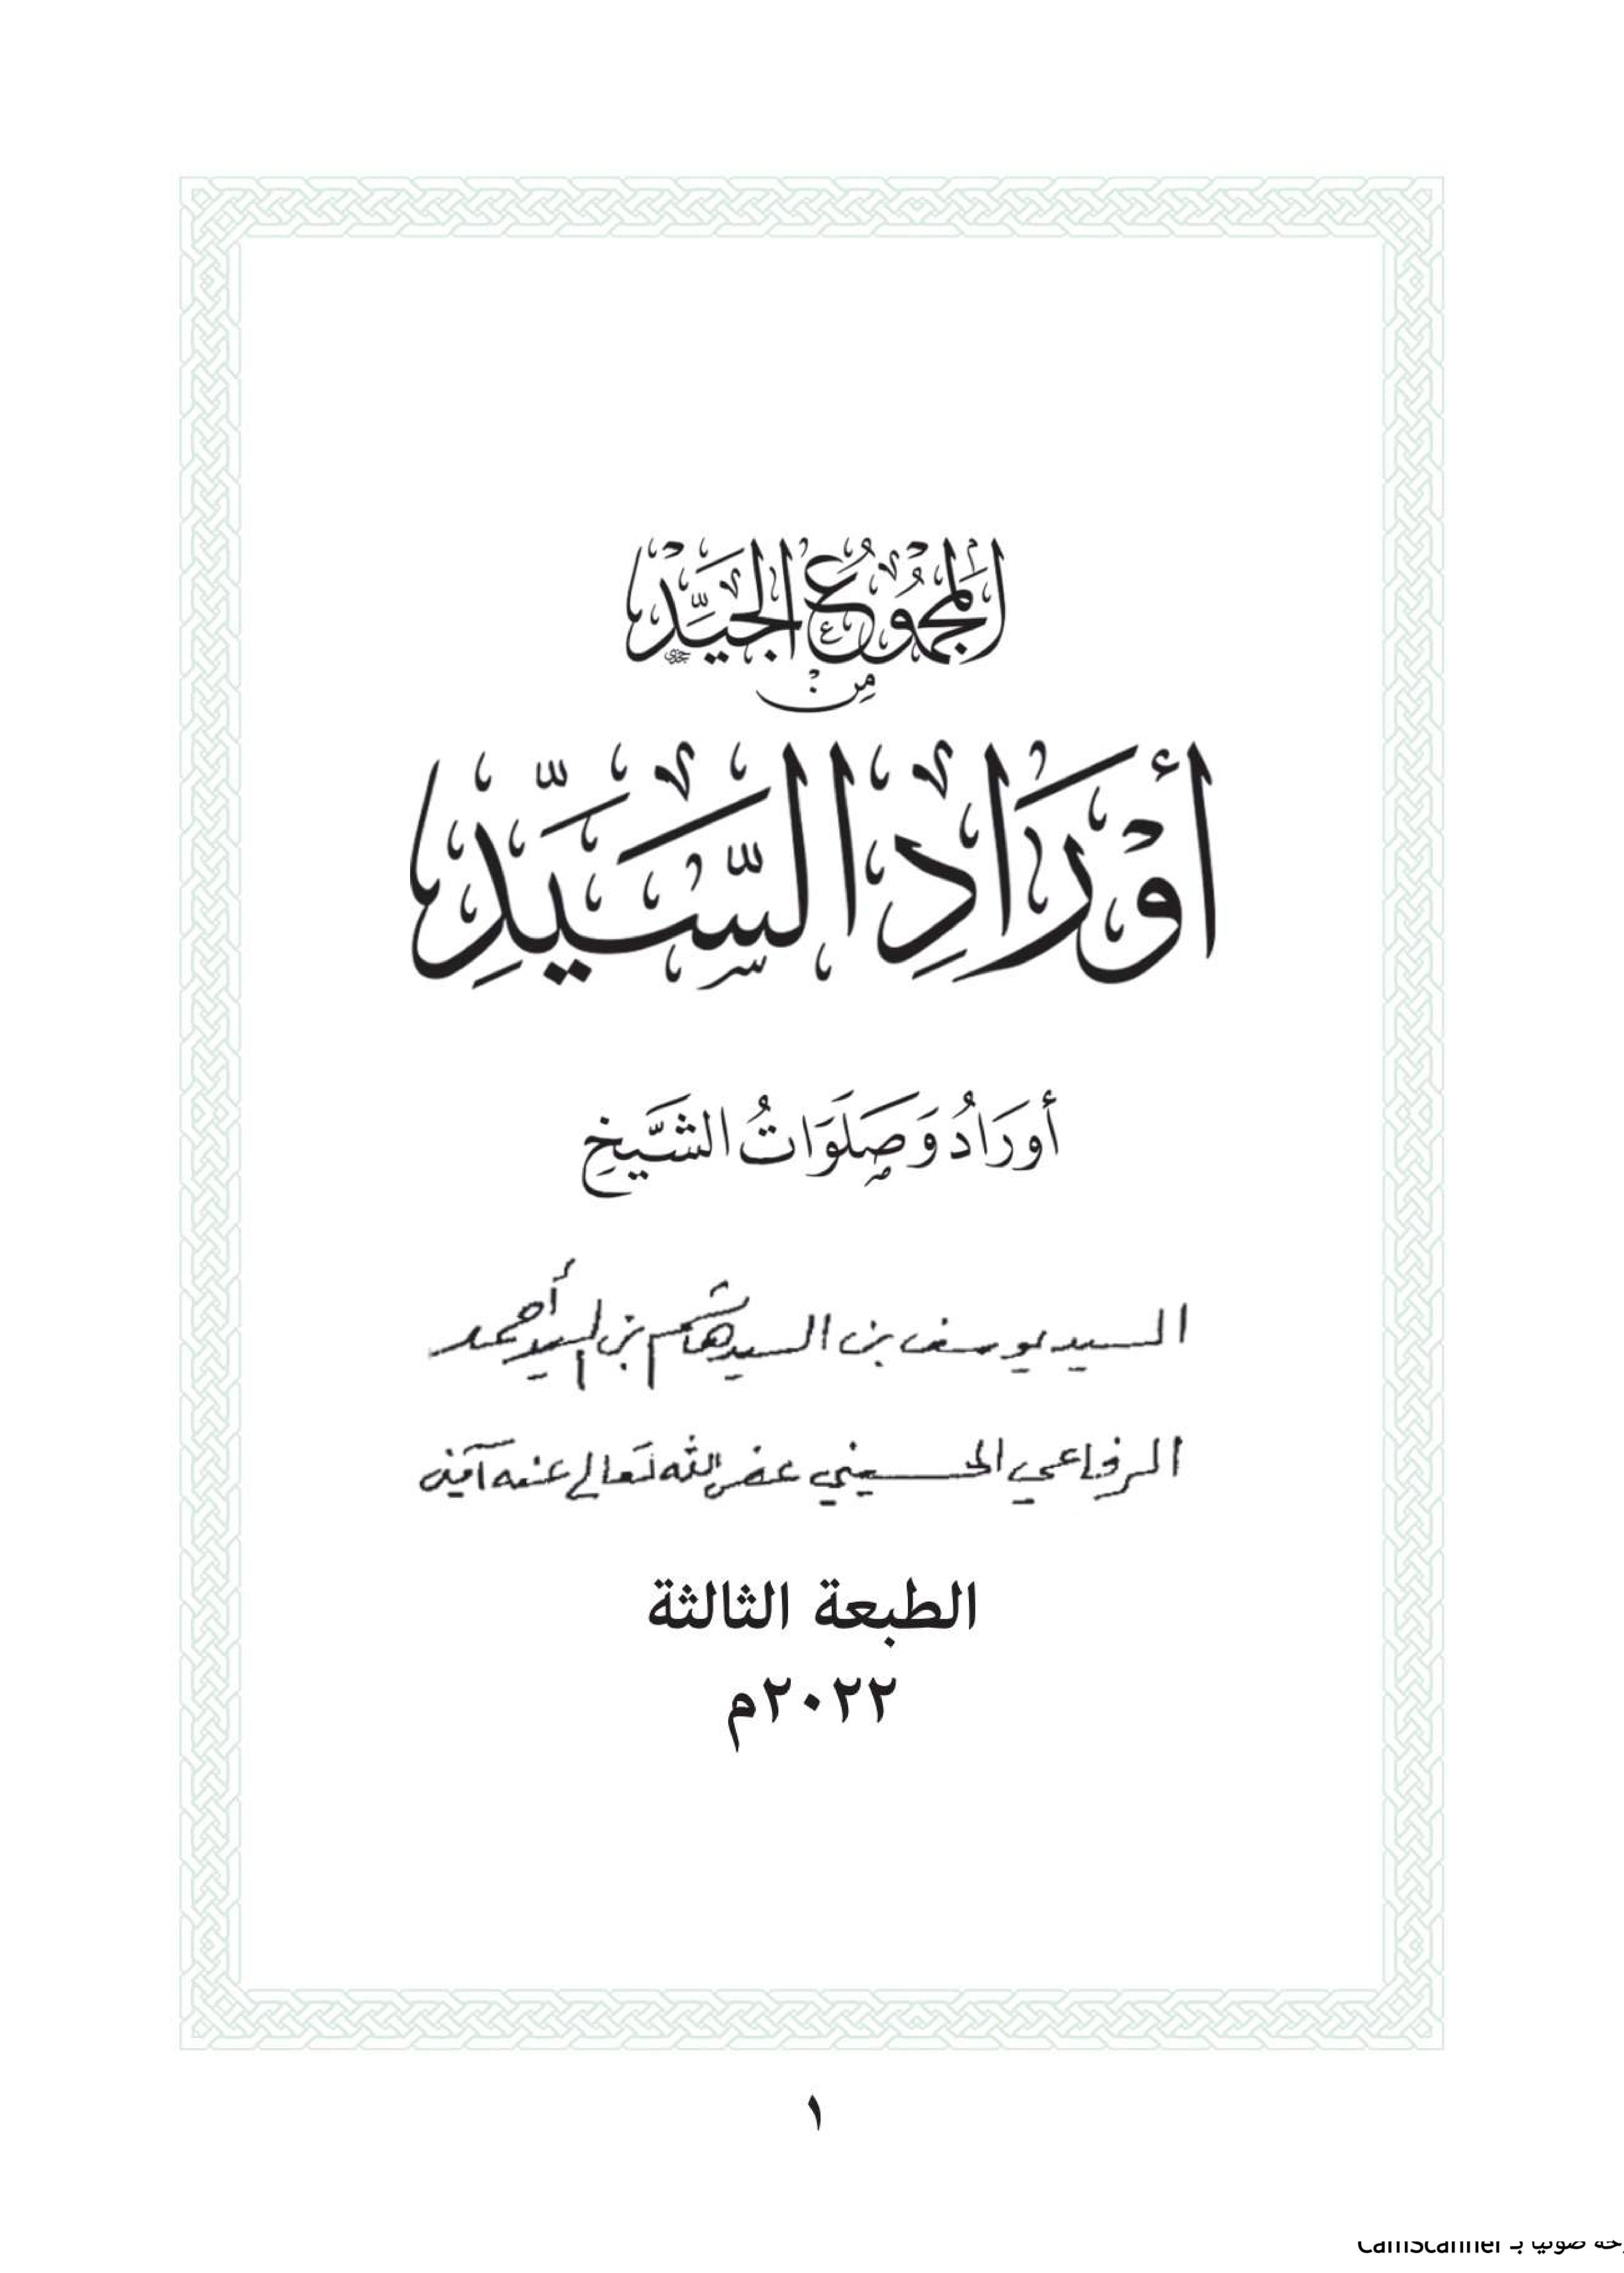 المَجْمُوعُ الجَيِّدْ
مِنْ
أَوْرَادِ السَّيِّدِ
أَورَادُ وَصَلَوَاتُ الشَّيْخِ
السيد يوسف بن السيد هاشم بن السيد أحمد
الرفاعي الحسيني عفى الله تعالى عنه آمين
الطبعة الثالثة
٢٠٢٢م
١
CamScanner